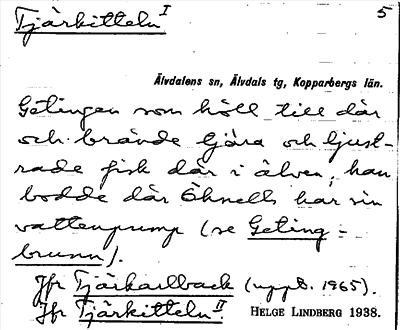 Tjärkitteln I
5
Älvdalens sn, Älvdals tg, Kopparbergs län.
Getingen som höll till där
och brände tjära och ljust-
rade fisk där i älven, han
bodde där Öhnells har sin
vattenpump (se Geting-
brunn).
Jfr Tjärkarlback (uppt. 1965).
Jfr Tjärkitteln II
HELGE LINDBERG 1938.